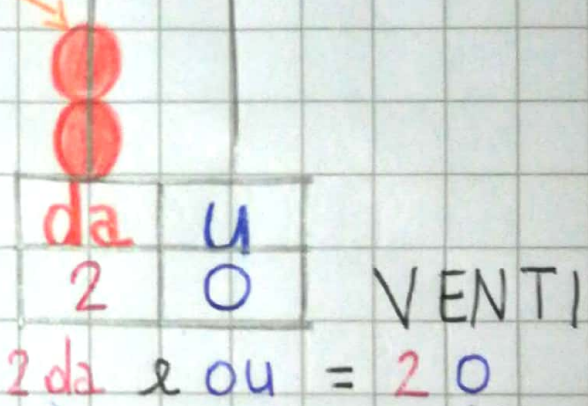 da u
2 0 VENTI
2 da e 0u = 20